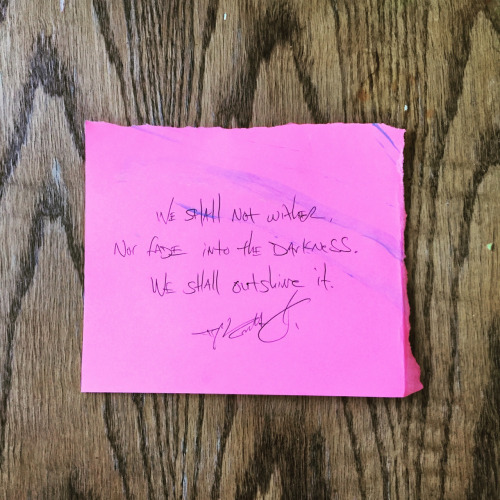 WE SHALL NOT WITHER,
NOR FADE INTO THE DARKNESS.
WE SHALL OUTSHINE IT.